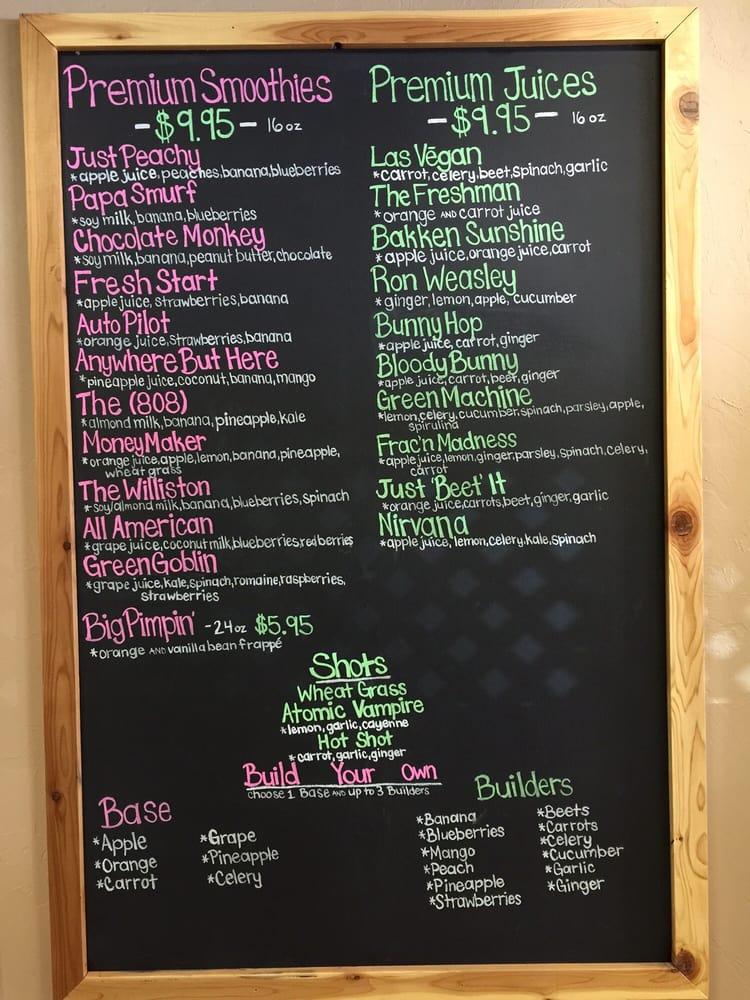 Premium Smoothies
-$9.95- 16 oz
Just Peachy
*apple juice, peaches, banana, blueberries
Papa Smurf
*soy milk, banana, blueberries
Chocolate Monkey
*soy milk, banana, peanut butter, chocolate
Fresh Start
*apple juice, strawberries, banana
Auto Pilot
*orange juice, strawberries, banana
Anywhere But Here
*pineapple juice, coconut, banana, mango
The (808)
*almond milk, banana, pineapple, kale
Money Maker
*orange juice, apple, lemon, banana, pineapple,
wheat grass
The Williston
*soy/almond milk, banana, blueberries, spinach
All American
*grape juice, coconut milk, blueberries, red berries
Green Goblin
*grape juice, kale, spinach, romaine, raspberries,
strawberries
Big Pimpin' -24oz $5.95
*orange AND vanilla bean frappé
Premium Juices
-$9.95- 16 oz
Las Vegan
*carrot, celery, beet, spinach, garlic
The Freshman
*orange AND carrot juice
Bakken Sunshine
*apple juice, orange juice, carrot
Ron Weasley
*ginger, lemon, apple, cucumber
Bunny Hop
*apple juice, carrot, ginger
Bloody Bunny
*apple juice, carrot, beet, ginger
Green Machine
*lemon, celery, cucumber, spinach, parsley, apple,
spirulina
Frac'n Madness
*apple juice, lemon, ginger, parsley, spinach, celery,
carrot
Just 'Beet' It
*orange juice, carrots, beet, ginger, garlic
Nirvana
*apple juice, lemon, celery, kale, spinach
Shots
Wheat Grass
Atomic Vampire
*lemon, garlic, cayenne
Hot Shot
*carrot, garlic, ginger
Build Your Own
choose 1 Base AND up to 3 Builders
Base
*Apple
*Orange
*Carrot
*Grape
*Pineapple
*Celery
Builders
*Banana
*Blueberries
*Mango
*Peach
*Pineapple
*Strawberries
*Beets
*Carrots
*Celery
*Cucumber
*Garlic
*Ginger